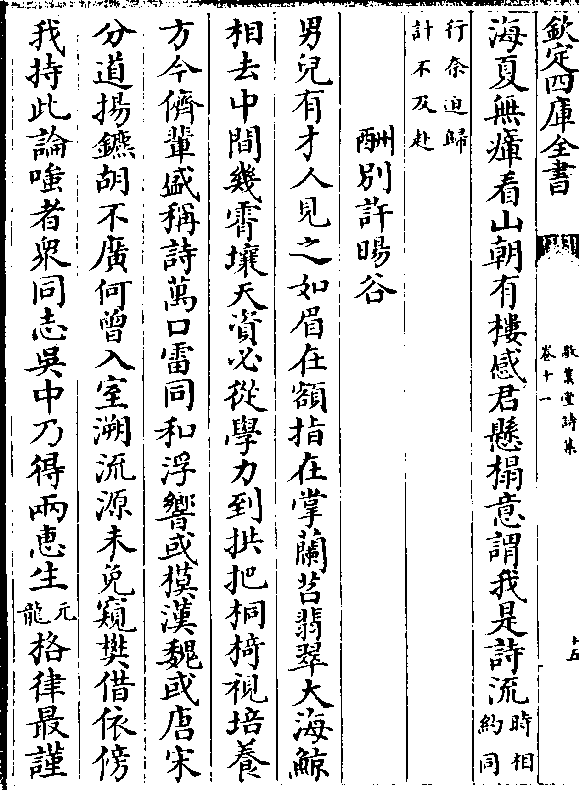 欽定四庫全書
敬業堂詩集
卷十一
十五
海夏無㾾看山朝有樓感君懸榻意謂我是詩流時相
約同
行奈迫歸
計不及赴
酬别許暘谷
男兒有才人見之如眉在額指在掌蘭苕翡翠大海鯨
相去中間幾霄壤天資必從學力到拱把桐椅視培養
方今儕輩盛稱詩萬口雷同和浮響或模漢魏或唐宋
分道揚鑣胡不廣何曾入室溯流源未免窺樊借依傍
我持此論嗤者衆同志吳中乃得兩惠生元
龍格律最謹